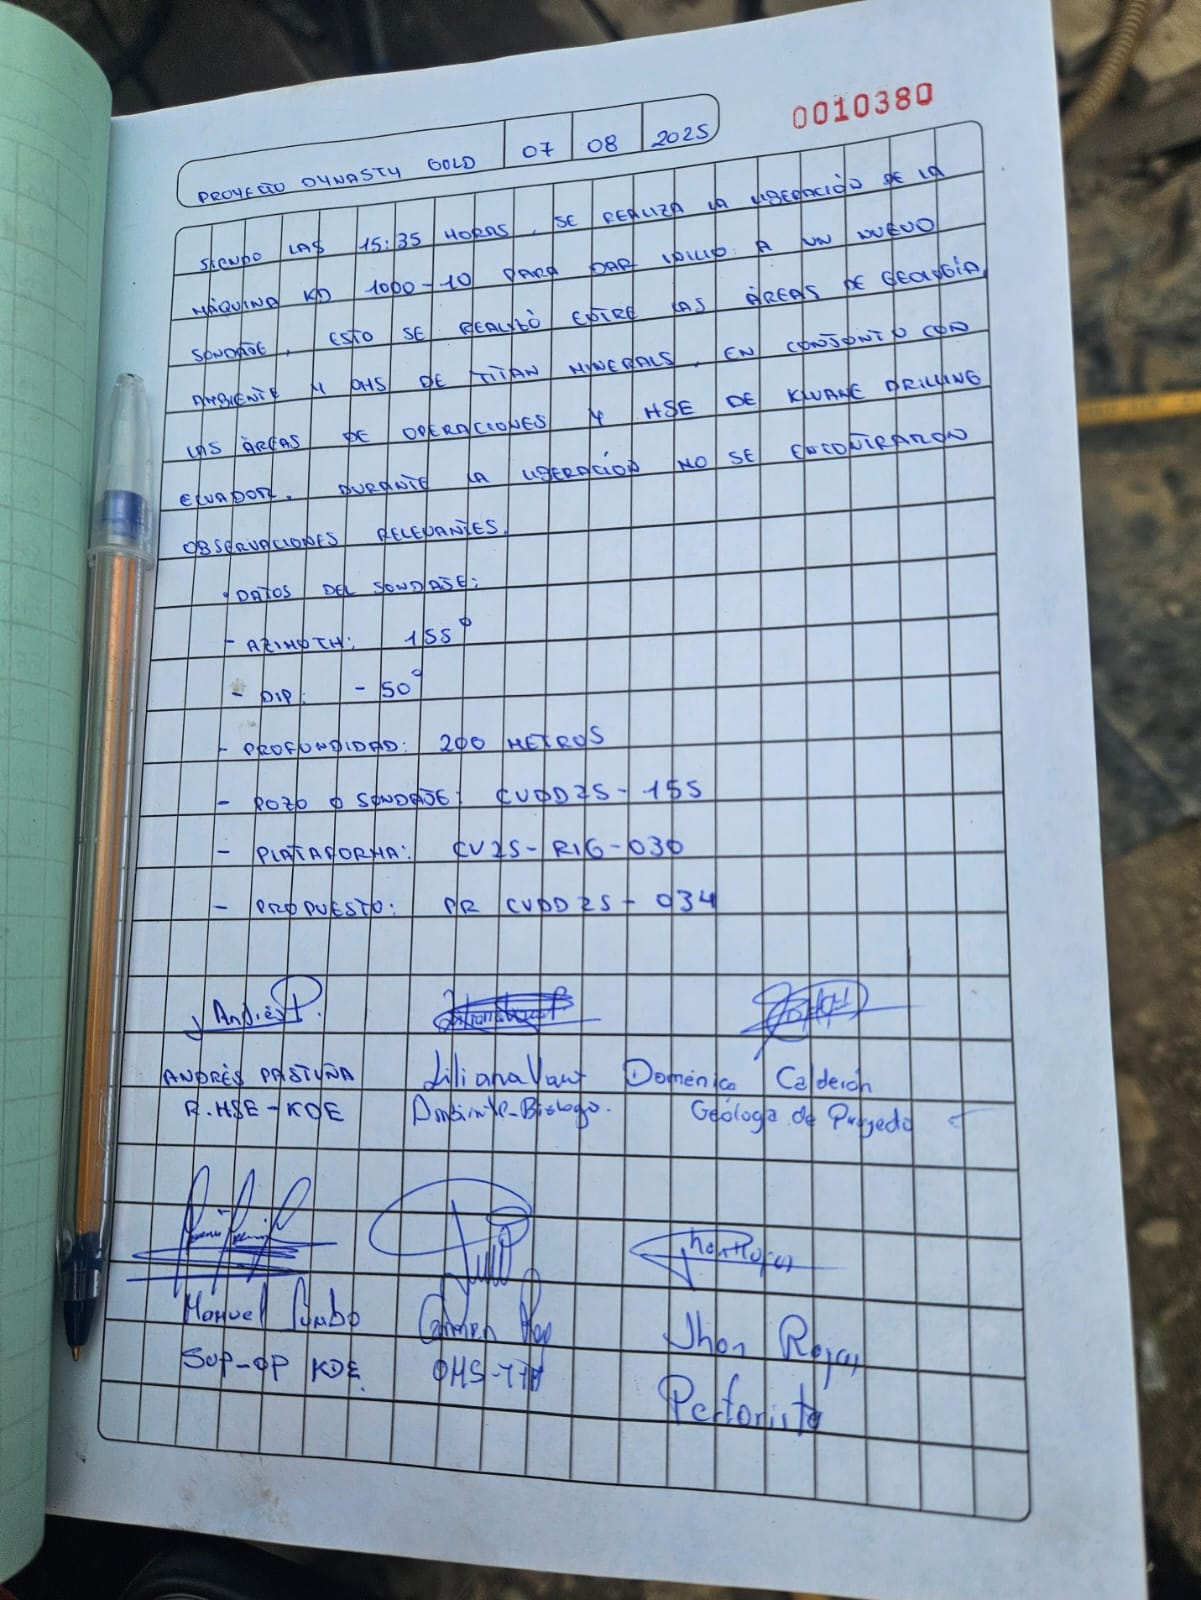 0010380
PROYECTO DYNASTY GOLD 07 08 2025
SIENDO LAS 15:35 HORAS, SE REALIZA LA LIBERACIÓN DE LA
MÁQUINA KD 1000-10 PARA DAR INICIO A UN NUEVO
SONDAJE, ESTO SE REALIZÓ ENTRE LAS ÁREAS DE GEOLOGÍA,
AMBIENTE Y OHS DE TITAN MINERALS, EN CONJUNTO CON
LAS ÁREAS DE OPERACIONES Y HSE DE KLUANE DRILLING
ECUADOR, DURANTE LA LIBERACIÓN NO SE ENCONTRARON
OBSERVACIONES RELEVANTES.
DATOS DEL SONDAJE:
- AZIMUTH: 155°
- DIP: - 50°
- PROFUNDIDAD: 200 METROS
- POZO O SONDAJE: CVDD25-155
- PLATAFORMA: CV25-RIG-030
- PROPUESTO: PR CVDD25-034
Andrés P.
ANDRÉS PASTUÑA Liliana Doménica Calderón
R.HSE-KDE Ambiente-Biologo. Geóloga de Proyecto
Jhon Rojas
Manuel Carmen Jhon Rojas
SUP-OP KDE OHS- Perforista